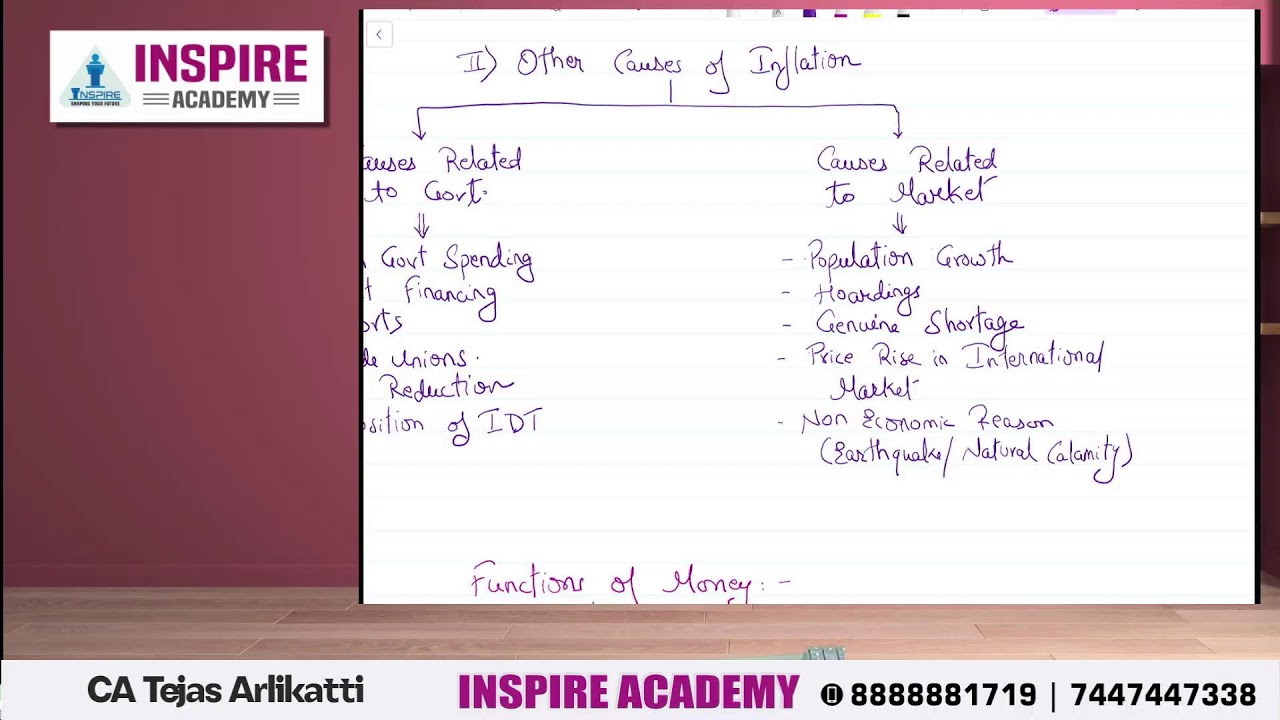 INSPIRE
ACADEMY
INSPIRE
SHAPING YOUR FUTURE
II) Other Causes of Inflation
auses Related
to Govt.
Govt Spending
t Financing
orts
de unions.
Reduction
osition of IDT
Causes Related
to Market
- Population Growth
- Hoardings
- Genuine Shortage
- Price Rise in International
Market
- Non Economic Reason
(Earthquake/ Natural Calamity)
Functions of Money: -
CA Tejas Arlikatti
INSPIRE ACADEMY
8888881719 | 7447447338